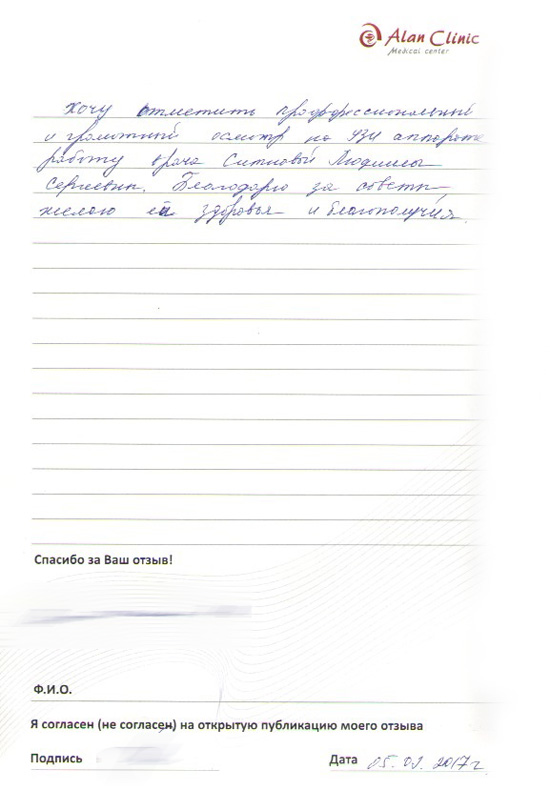 Alan Clinic
Medical center
Хочу отметить профессиональный
и грамотный осмотр на УЗИ аппарате
работу врача Ситновой Людмилы
Сергеевны. Благодарю за советы
желаю ей здоровья и благополучия.
Спасибо за Ваш отзыв!
Ф.И.О.
Я согласен (не согласен) на открытую публикацию моего отзыва
Подпись
Дата 05.01.2017г